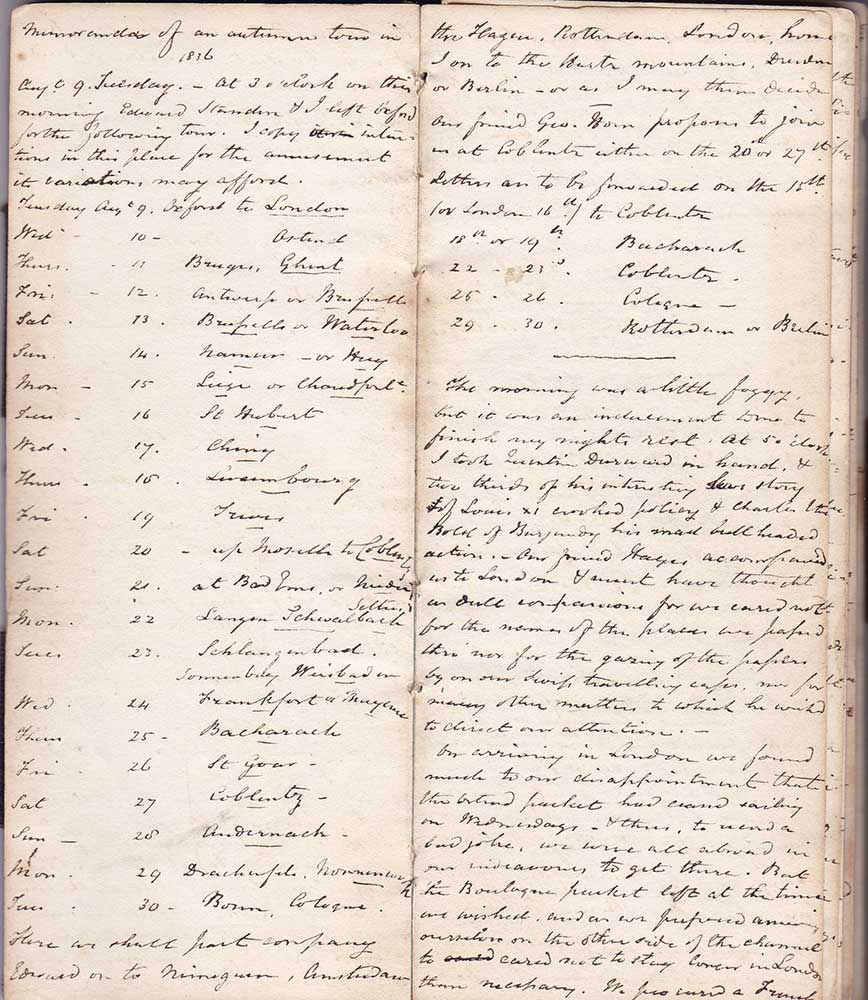 Memoranda of an autumn tour in
1836
Augt 9. Tuesday. - At 3 o'clock on this
morning Edward Standen & I left Oxford
for the following tour. I copy inten-
tions in this place for the amusement
it variations may afford.
Tuesday Augt 9. Oxford to London
Wed - 10 - Ostend
Thurs. - 11 Bruges, Ghent
Fri - 12. Antwerp or Brussells
Sat . 13. Brussells or Waterloo
Sun. 14. Namur - or Huy
Mon - 15 Liege or Chaudfonte.
Tues - 16 St Hubert
Wed. - 17. Chiny
Thurs - 18. Luxembourg
Fri . 19 Treves
Sat 20 - up Moselle to Coblentz
Sun. 21. at Bad Ems, or Nieder
Selters
Mon. 22 Langen Schwalbach
Tues 23. Schlangenbad.
Sonnenberg Weisbaden
Wed . 24 Frankfort or Mayence
Thurs 25 - Bacharach
Fri . 26 St Goar -
Sat 27 Coblentz -
Sun - 28 Andernach -
Mon . 29 Drachenfels, Nonnenwerth
Tues . 30 - Bonn, Cologne.
Here we shall part company
Edward on to Nimeguen, Amsterdam
the Hague, Rotterdam, London, home
I on to the Hartz mountains, Dresden
or Berlin - or as I may then decide
Our friend Geo. Horn proposes to join
us at Coblentz either on the 20th or 27th.
Letters are to be forwarded on the 15th
(or London 16th) to Coblentz
18th or 19th. Bacharach
22 - 23d. Coblentz.
25 - 26. Cologne -
29 - 30. Rotterdam or Berlin
The morning was a little foggy.
but it was an inducement to me to
finish my nights rest. At 5 o'clock
I took Quentin Durward in hand, &
two thirds of his interesting story
of Louis XI crooked policy & Charles the
Bold of Burgundy his mad bull headed
action. - Our friend Hayes accompanied
us to London & must have thought
us dull companions for we cared not
for the names of the places we passed
thro' nor for the gazing of the
by on our Swiss travelling caps, nor for
many other matters to which he wished
to direct our attention. -
On arriving in London we found
much to our disappointment that
the Ostend packet had ceased sailing
on Wednesdays - & thus, to use a
bad joke, we were all abroad in
our endeavours to get there. But
the Boulogne packet left at the time
we wished, and as we prefered amusing
ourselves on the other side of the channel
to cared not to stay longer in London
than necessary. We procured a French